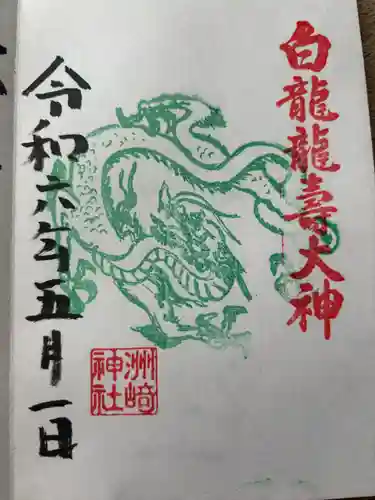 白龍龍壽大神
令和六年五月一日
洲崎神社